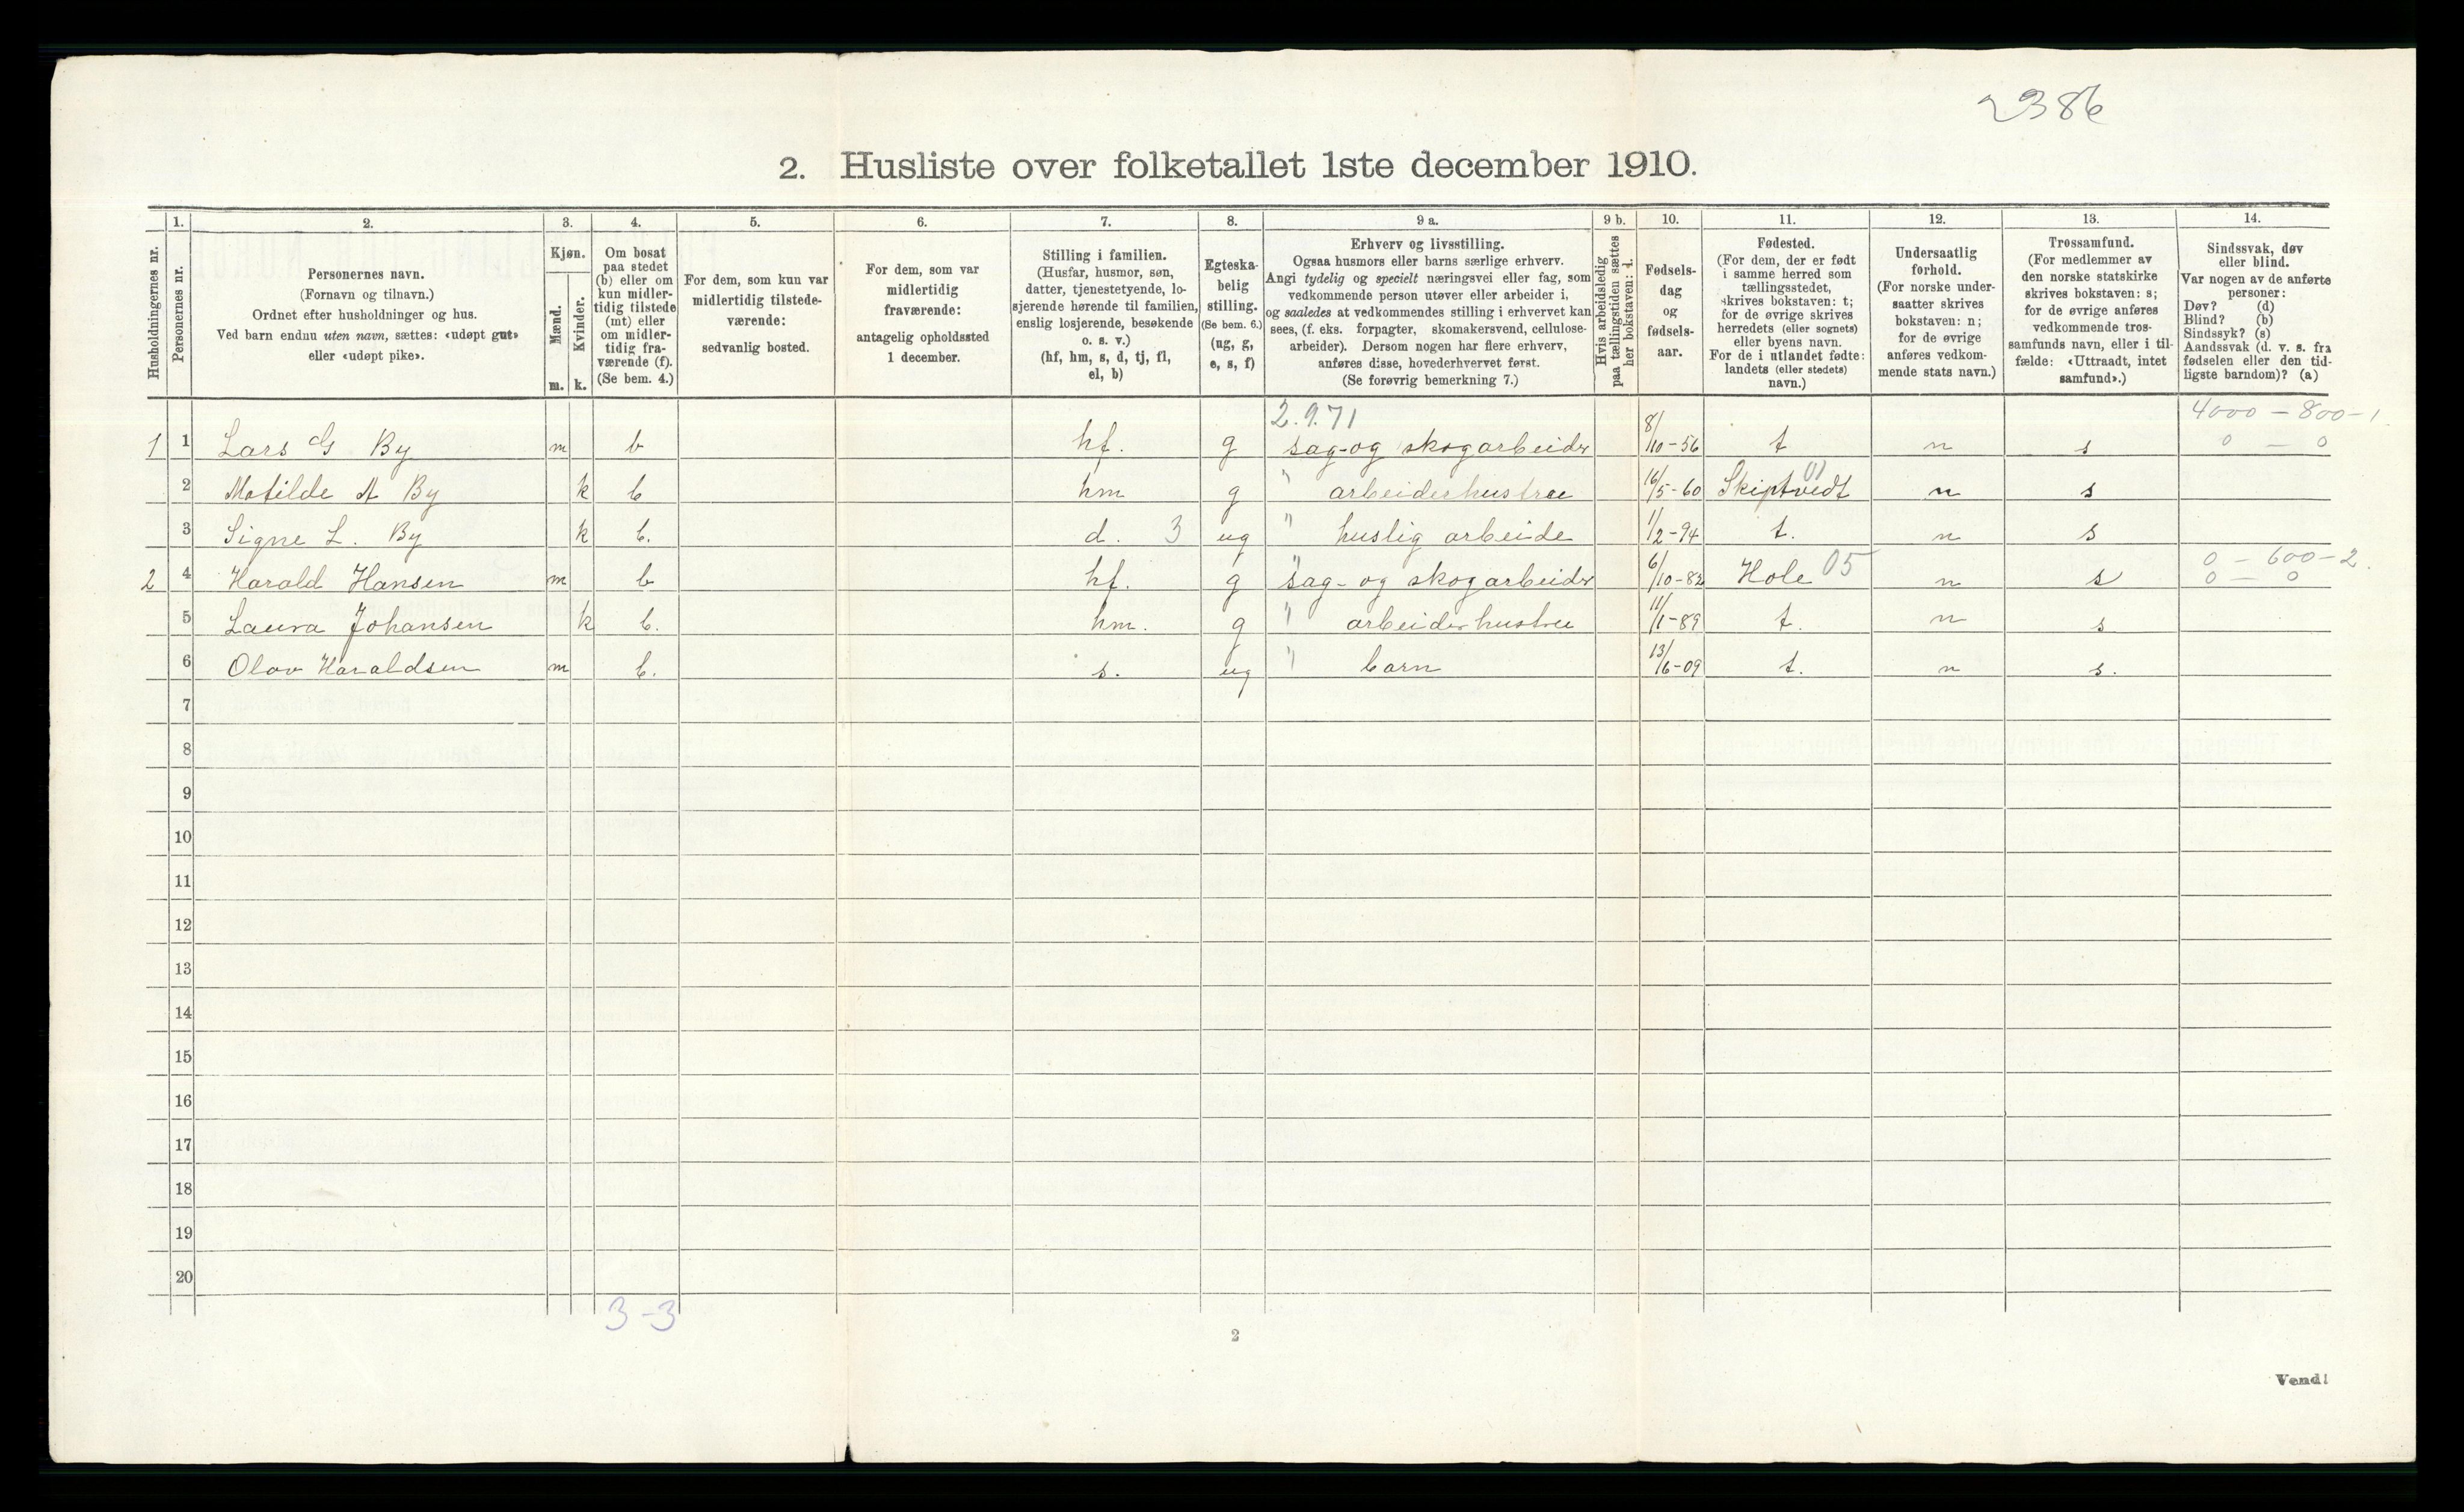 2386
2. Husliste over folketallet 1ste december 1910.
Husholdningernes nr.
1.
Personernes nr.
2.
Personernes navn.
(Fornavn og tilnavn.)
Ordnet efter husholdninger og hus.
Ved barn endnu uten navn, sættes: «udøpt gut»
eller «udøpt pike».
3.
Kjøn.
Mænd.
Kvinder.
m. k.
4.
Om bosat
paa stedet
(b) eller om
kun midler-
tidig tilstede
(mt) eller
om midler-
tidig fra-
værende (f).
(Se bem. 4.)
5.
For dem, som kun var
midlertidig tilstede-
værende:
sedvanlig bosted.
6.
For dem, som var
midlertidig
fraværende:
antagelig opholdssted
1 december.
7.
Stilling i familien.
(Husfar, husmor, søn,
datter, tjenestetyende, lo-
sjerende hørende til familien,
enslig losjerende, besøkende
o. s. v.)
(hf, hm, s, d, tj, fl,
el, b)
8.
Egteska-
belig
stilling.
(Se bem. 6.)
(ug, g,
e, s, f)
9 a.
Erhverv og livsstilling.
Ogsaa husmors eller barns særlige erhverv.
Angi tydelig og specielt næringsvei eller fag, som
vedkommende person utøver eller arbeider i,
og saaledes at vedkommendes stilling i erhvervet kan
sees, (f. eks. forpagter, skomakersvend, cellulose-
arbeider). Dersom nogen har flere erhverv,
anføres disse, hovederhvervet først.
(Se forøvrig bemerkning 7.)
9 b.
Hvis arbeidsledig
paa tællingstiden sættes
her bokstaven: l.
10.
Fødsels-
dag
og
fødsels-
aar.
11.
Fødested.
(For dem, der er født
i samme herred som
tællingsstedet,
skrives bokstaven: t;
for de øvrige skrives
herredets (eller sognets)
eller byens navn.
For de i utlandet fødte:
landets (eller stedets)
navn.)
12.
Undersaatlig
forhold.
(For norske under-
saatter skrives
bokstaven: n;
for de øvrige
anføres vedkom-
mende stats navn.)
13.
Trossamfund.
(For medlemmer av
den norske statskirke
skrives bokstaven: s;
for de øvrige anføres
vedkommende tros-
samfunds navn, eller i til-
fælde: «Uttraadt, intet
samfund».)
14.
Sindssvak, døv
eller blind.
Var nogen av de anførte
personer:
Døv? (d)
Blind? (b)
Sindssyk? (s)
Aandssvak (d. v. s. fra
fødselen eller den tid-
ligste barndom)? (a)
2.9.71 4000 – 800 – 1
1 1 Lars G By m b hf. g sag- og skogarbeider 8/10-56 t n s 0 – 0
2 Matilde A By k b hm g " arbeiderhustrue 16/5-60 Skiptvedt 01 n s
3 Signe L. By k b. d. 3 ug " huslig arbeide 1/2-94 t. n s
0 – 600 – 2.
2 4 Harald Hansen m b hf. g " sag- og skogarbeider 6/10-82 Hole 05 n s 0 – 0
5 Laura Johansen k b. hm. g " arbeiderhustru 11/1-89 t. n s
6 Olav Haraldsen m b. s. ug " barn 13/6-09 t. n s.
7
8
9
10
11
12
13
14
15
16
17
18
19
20
3-3
2
Vend!